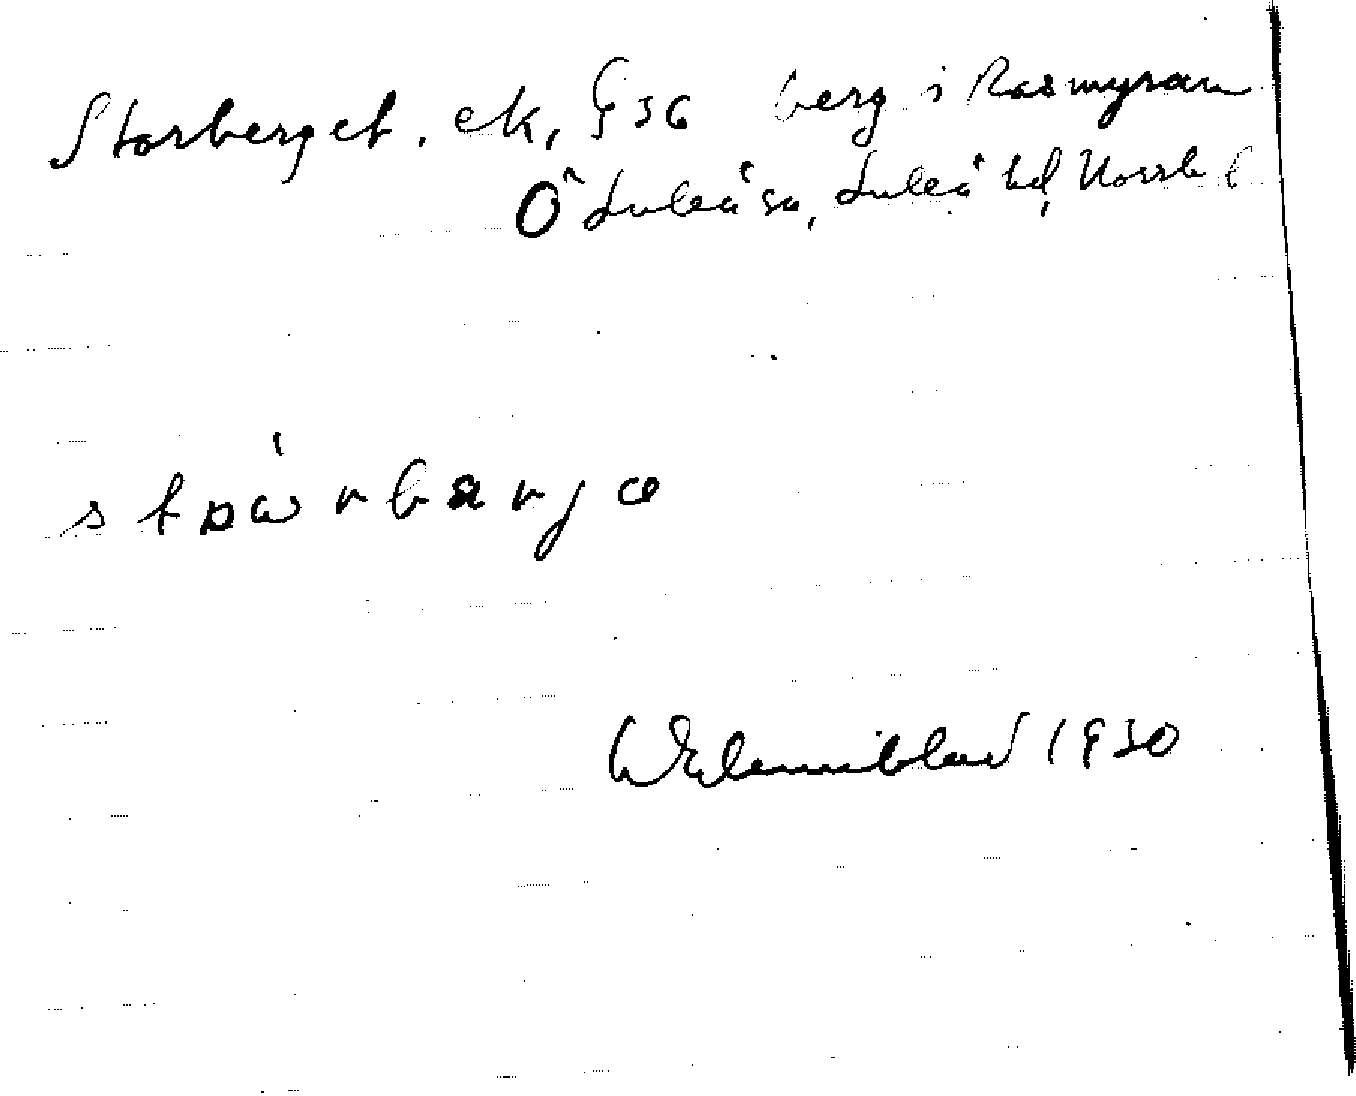 Storberget. ek, § 36 berg i Rosmyran
Ö Luleå sn, Luleå hd, Norrb l
stωrbarjə
Wilenniblad 1930